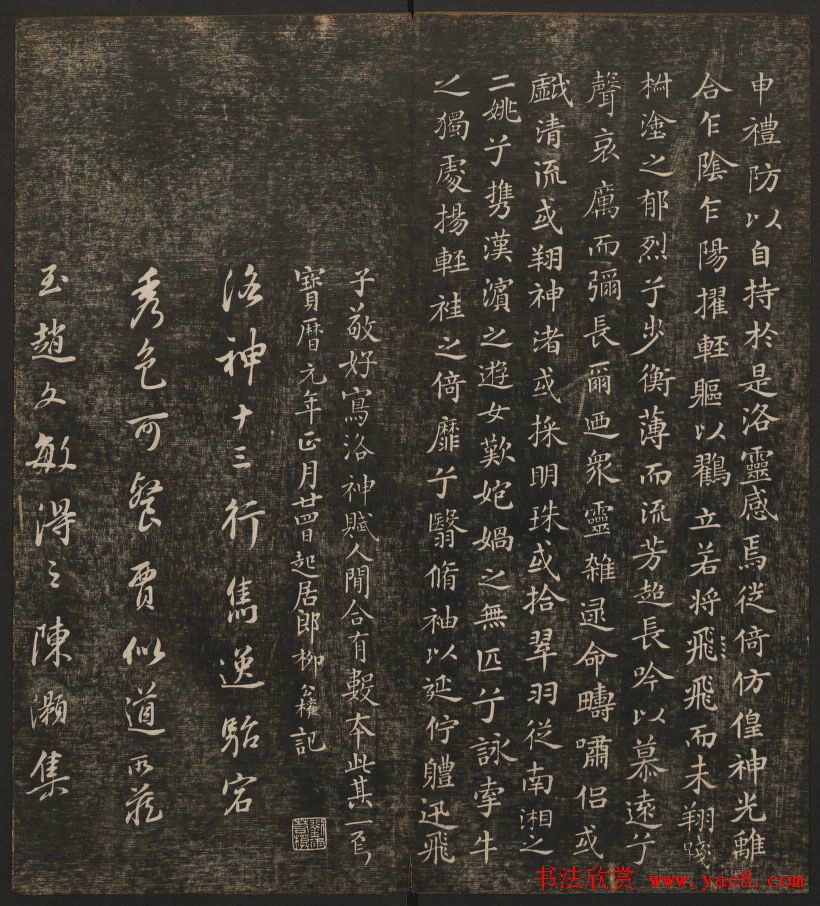 申禮防以自持於是洛靈感焉從倚仿偟神光離
合乍陰乍陽擢輕軀以鸖立若將飛飛而未翔踐
椒塗之郁烈兮步衡薄而流芳超長吟以慕遠兮
聲哀厲而彌長爾迺衆靈雜遝命疇嘯侶或
戲清流或翔神渚或採明珠或拾翠羽從南湘之
二姚兮携漢濱之遊女歎妵媧之無匹兮詠牽牛
之獨處揚輕袿之倚靡兮翳脩袖以延佇體迅飛
子敬好寫洛神賦人間合有數本此其一焉
寶曆元年正月廿四日起居郎柳公權記
洛神十三行雋逸駘宕
秀色可餐賈似道所藏
至趙文敏得之陳灝集
书法欣赏 www.yac8.com